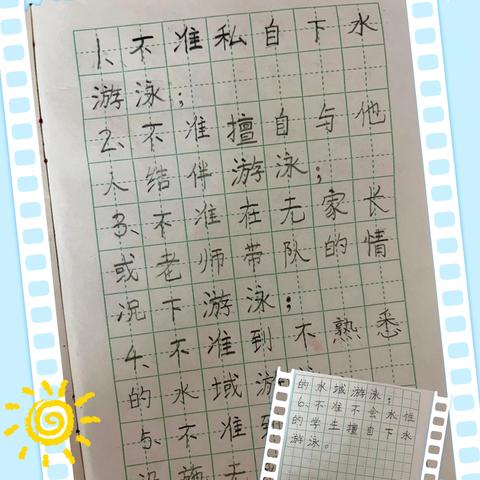 1、不准私自下水
游泳；
2、不准擅自与他
人结伴游泳；
3、不准在无家长
或老师带队的情
况下游泳；
4、不准到不熟悉
的水域游
5、不准到
设施
的水域游泳；
6、不准不会水性
的学生擅自下水
游泳。